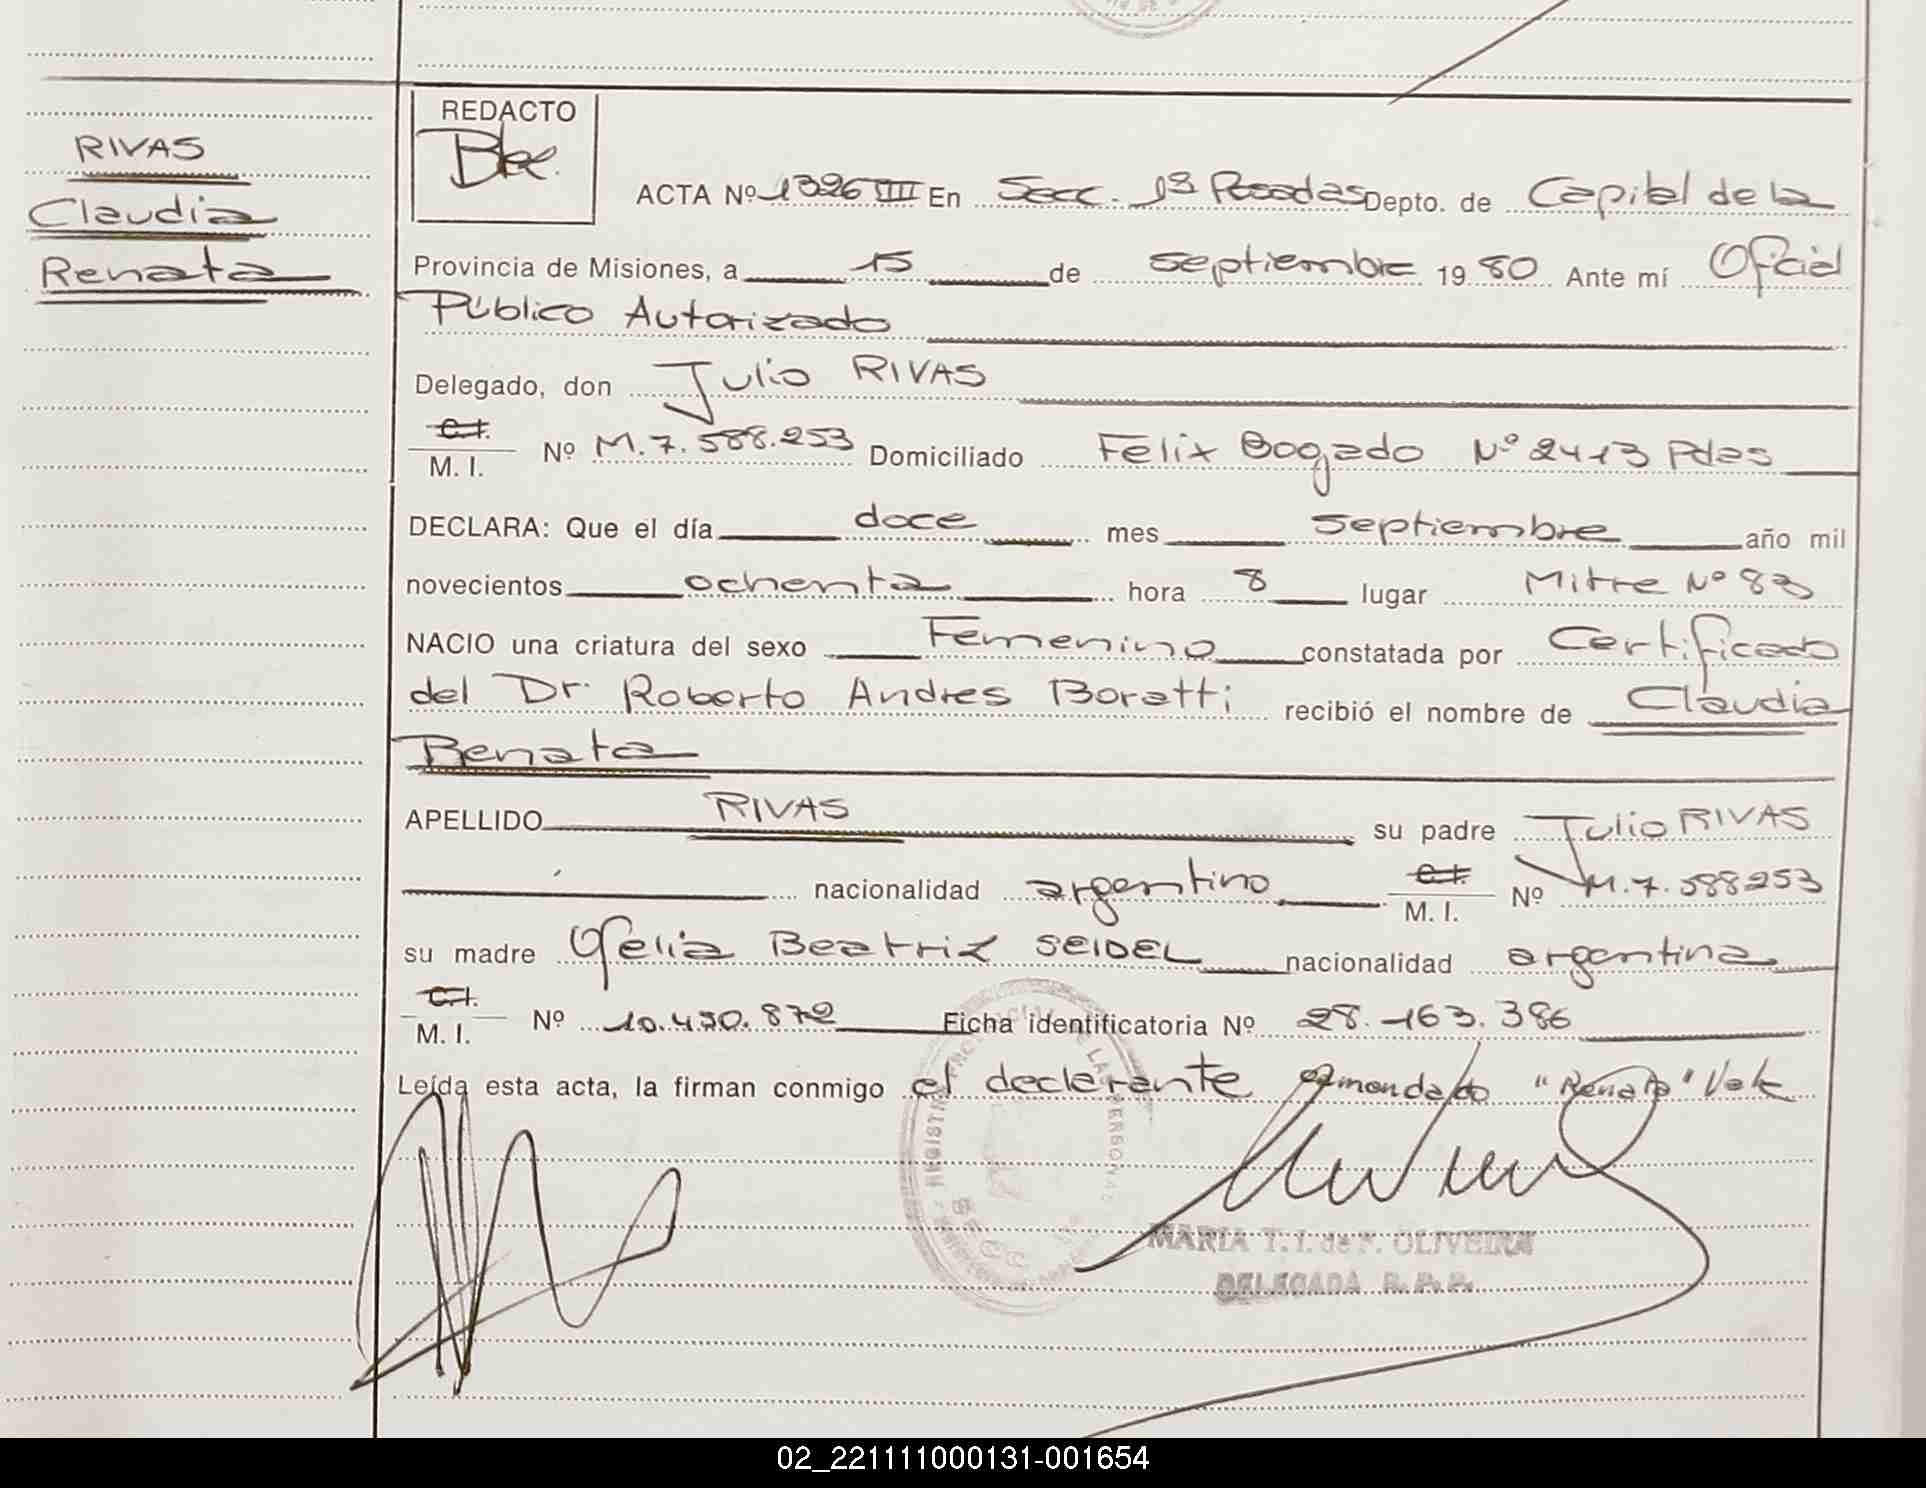 RIVAS
Claudia
Renata
REDACTO
ACTA Nº 1326 III En Secc. 1ª Posadas Depto. de Capital de la
Provincia de Misiones, a 15 de septiembre 19 80 Ante mí Oficial
Público Autorizado
Delegado, don Julio RIVAS
C.I.
M. I. Nº M.7.588.253 Domiciliado Felix Bogado Nº 2413 Pdas
DECLARA: Que el día doce mes septiembre año mil
novecientos ochenta hora 8 lugar Mitre Nº 83
NACIO una criatura del sexo Femenino constatada por Certificado
del Dr. Roberto Andres Boratti recibió el nombre de Claudia
Renata
APELLIDO RIVAS su padre Julio RIVAS
nacionalidad argentino C.I. M. I. Nº M.7.588253
su madre Ofelia Beatriz SEIDEL nacionalidad argentina
C.I.
M. I. Nº 10.430.872 Ficha identificatoria Nº 28.163.386
Leída esta acta, la firman conmigo el declarante enmendado "Renata" Vale
MARIA T. I. de F. OLIVEIRA
DELEGADA R. P. P.
02_221111000131-001654